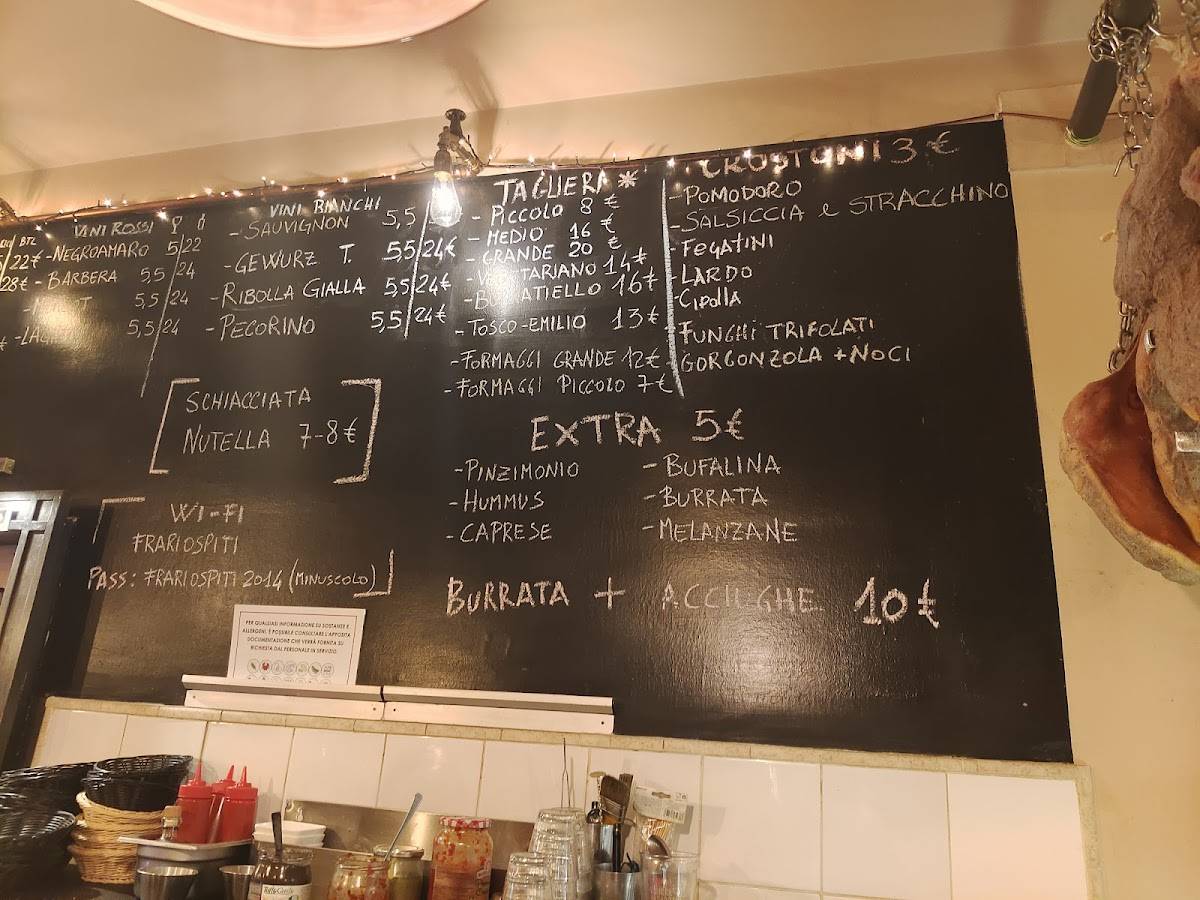 VINI ROSSI
22€ - NEGROAMARO 5/22
28€ - BARBERA 5,5 24
5,5 24
5,5 24
VINI BIANCHI
- SAUVIGNON 5,5
- GEWURZ T. 5,5 24€
- RIBOLLA GIALLA 5,5 24€
- PECORINO 5,5 24€
TAGLIERI *
- PICCOLO 8 €
- MEDIO 16 €
- GRANDE 20 €
- VEGETARIANO 14€
16€
- TOSCO-EMILIO 13€
- FORMAGGI GRANDE 12€
- FORMAGGI PICCOLO 7€
CROSTONI 3 €
- POMODORO
- SALSICCIA e STRACCHINO
- FEGATINI
- LARDO
- CIPOLLA
- FUNGHI TRIFOLATI
- GORGONZOLA + NOCI
SCHIACCIATA
NUTELLA 7-8€
EXTRA 5€
- PINZIMONIO
- HUMMUS
- CAPRESE
- BUFALINA
- BURRATA
- MELANZANE
WI-FI
FRARIOSPITI
PASS: FRARIOSPITI2014 (MINUSCOLO)
BURRATA + ACCIUGHE 10€
PER QUALSIASI INFORMAZIONE SU SOSTANZE E
ALLERGENI, È POSSIBILE CONSULTARE L'APPOSITA
DOCUMENTAZIONE CHE VERRÀ FORNITA SU
RICHIESTA DAL PERSONALE IN SERVIZIO.